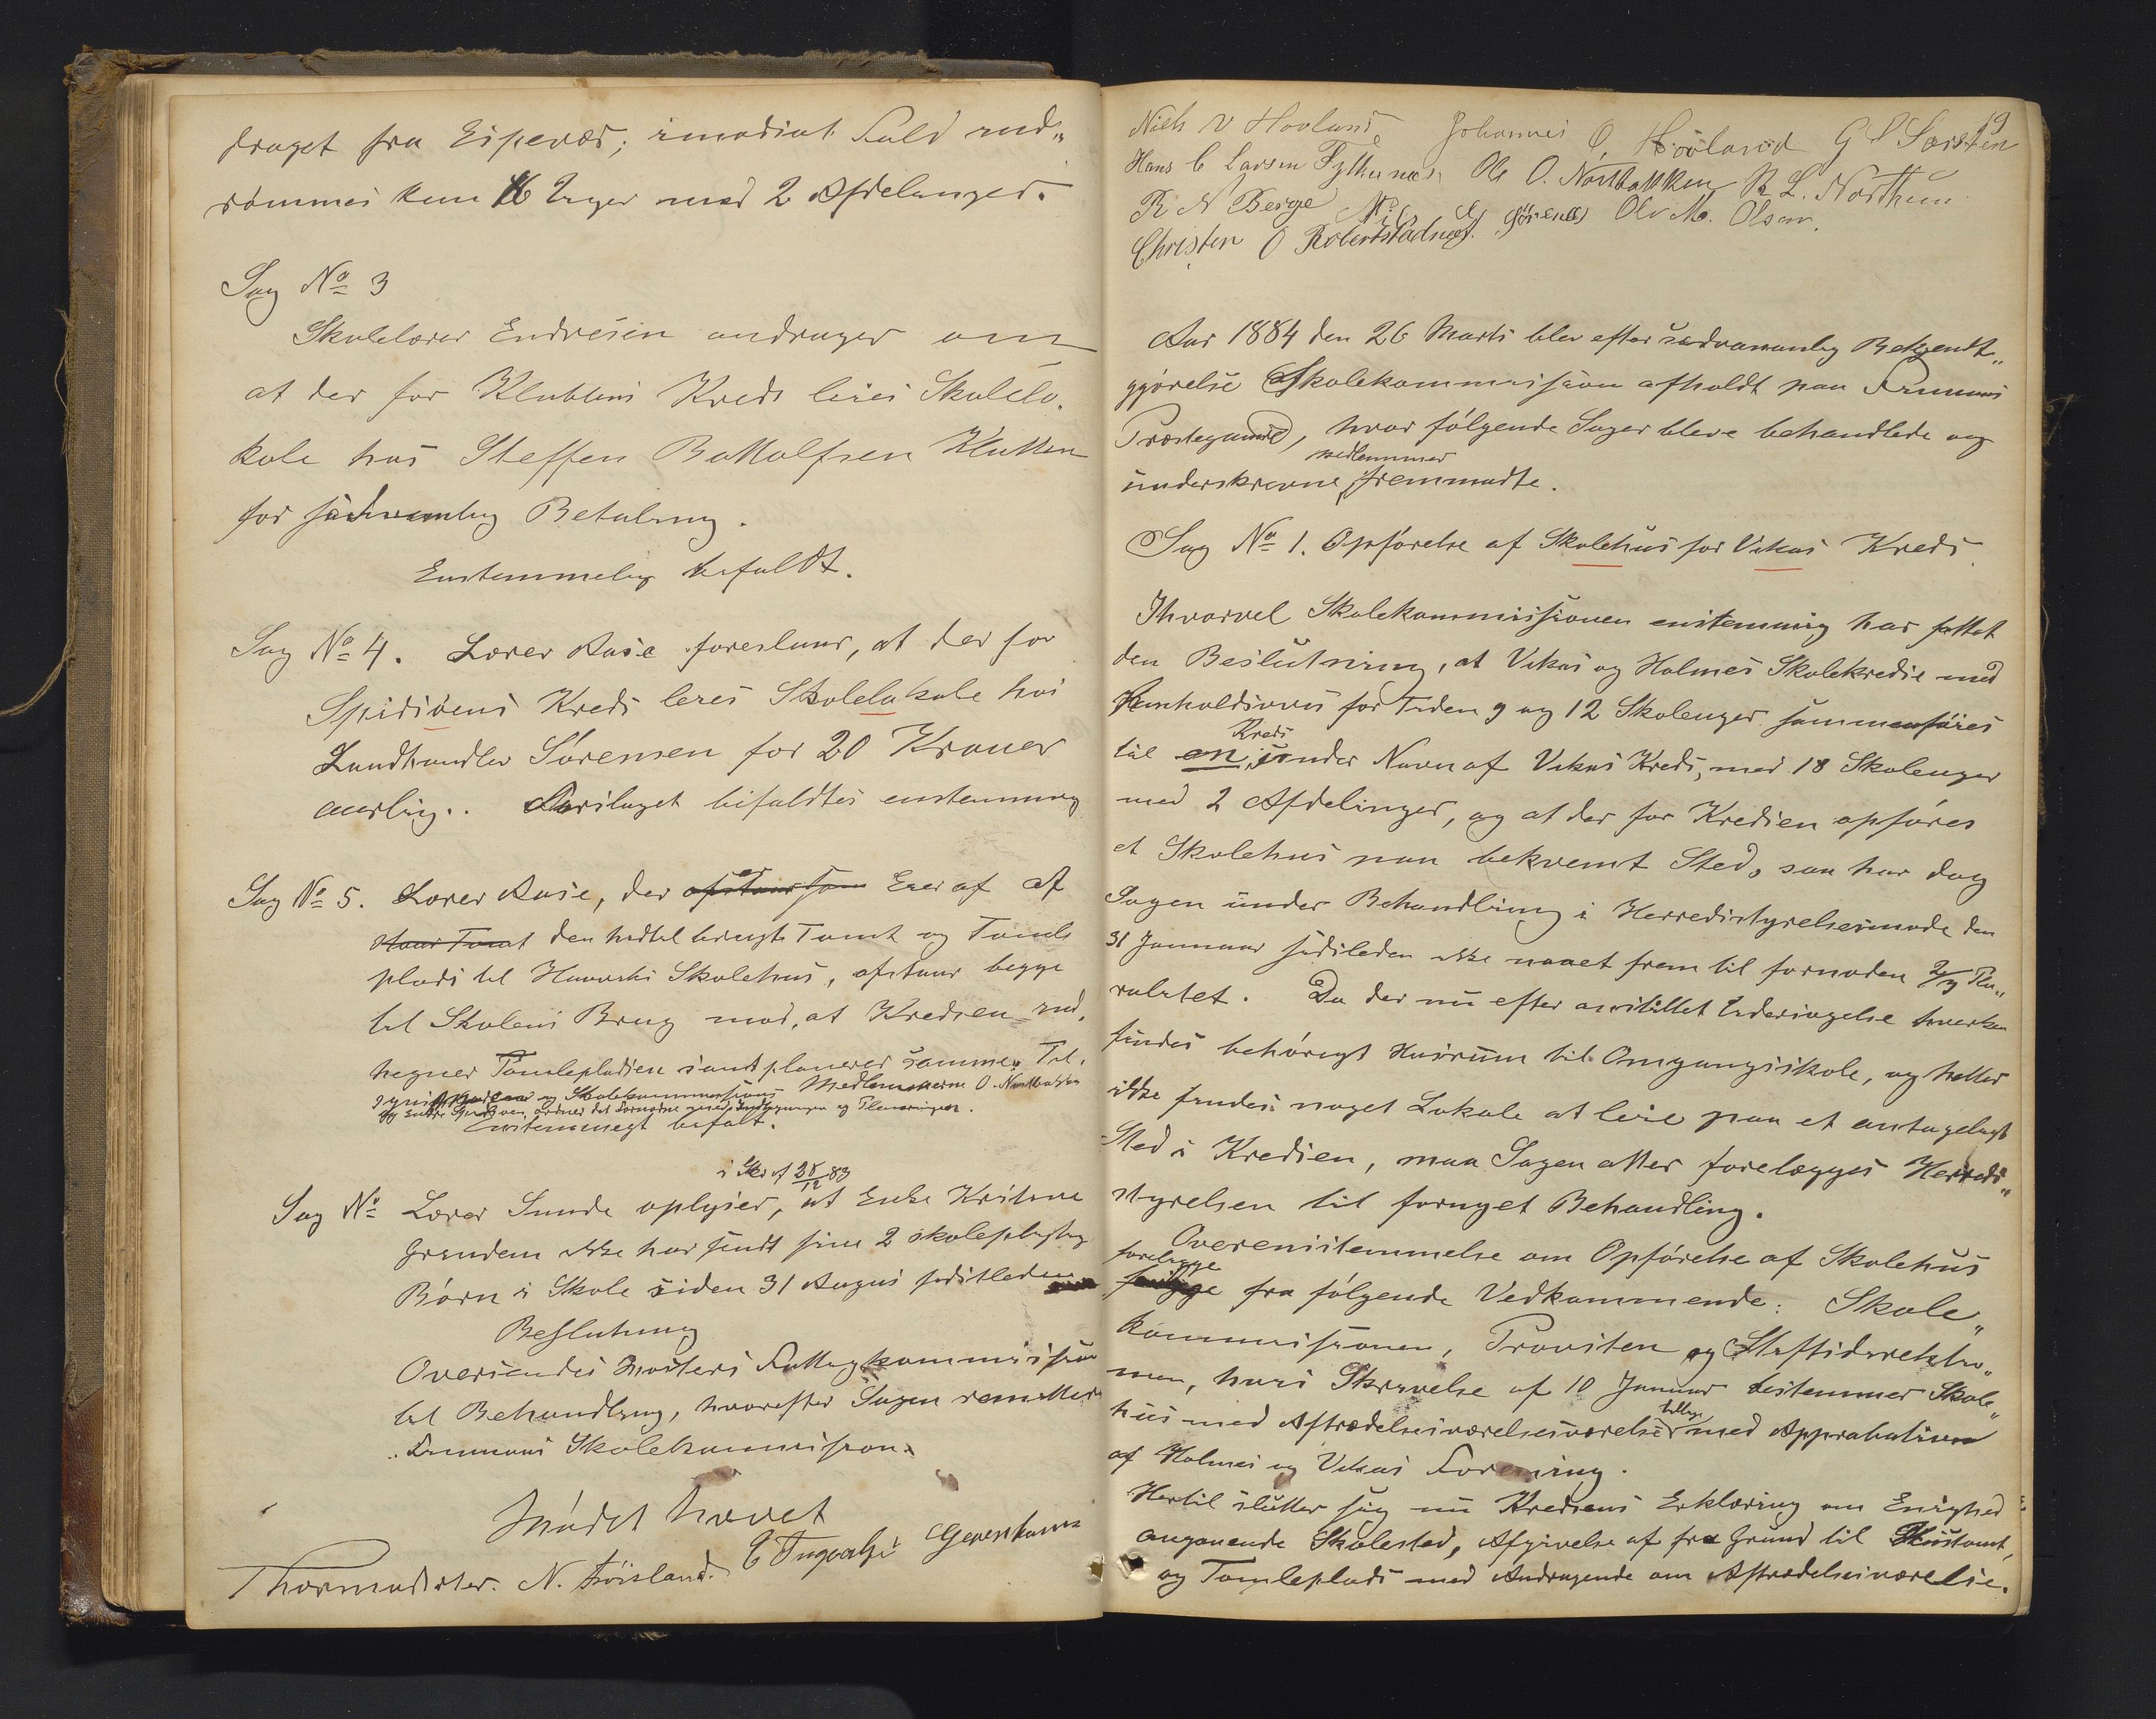 draget fra Espevær; imodsat Fald ind„
rømmes kun 6 Uger med 2 Afdelinger.
Sag No 3
Skolelærer Endresen andrager om
at der for Klubbens Kreds leies Skolelo„
kale hos Steffen Bottolfsen Klubben
for sædvanlig Betaling.
Enstemmeligt bifaldt.
Sag No 4. Lærer Aase foreslaar, at der for
Spidsøens Kreds leies Skolelokale hos
Landhandler Sørensen for 20 Kroner
aarlig. Forslaget bifaldtes enstemmig
Sag No 5. Lærer Aase, der er Eier af
den hidtil brugte Tomt og Tomle
plads til Skolehus, afstaar begge
til Skolens Brug mod, at Kredsen ind„
hegner Tomlepladsen samt planerer samme. Til„
og Skolekommissions Medlemmerne O. Nordbakken
ordner det Fornødne med Indhegningen og Planeringen.
Enstemmigt bifaldt.
i Skr. af 28/12 83
Sag No Lærer Sunde oplyser, at Enke Kristine
ikke har sendt sine 2 skolepligtige
Børn i Skole siden 31 August sidstleden
Beslutning
Oversendes Mosters Fattigkommission
til Behandling, hvorefter Sagen remitteres
Finnaas Skolekommission.
Mødet hævet
Thormodsæter. N. Frøisland.
19
Niels N Hovland Johannes O. Hovland G S Sørstien
Hans C Larsen Fylkesnæs Ole O. Nordbakken R L. Northun
R N Berge Nils G Gjøsenes Ole M. Olsen.
Christen O Robertstadneset.
Aar 1884 den 26 Marts blev efter sædvanlig Bekjendt„
gjørelse Skolekommission afholdt paa Finnaas
Præstegaard, hvor følgende Sager bleve behandlede og
medlemmer
underskrevne fremmødte.
Sag No 1. Opførelse af Skolehus for Vikas Kreds.
Ihvorvel Skolekommissionen enstemmig har fattet
den Beslutning, at Vikas og Holmes Skolekredse med
Henholdsvis for Tiden 9 og 12 Skoleuger sammenføies
Kreds
til en under Navn af Vikas Kreds, med 18 Skoleuger
med 2 Afdelinger, og at der for Kredsen opføres
et Skolehus paa bekvemt Sted, saa har dog
Sagen under Behandling i Herredsstyrelsesmøde den
31 Januar sidstleden ikke naaet frem til fornøden 2/3 Plu„
ralitet. Da der nu efter anstillet Undersøgelse hverken
findes behørigt Husrum til Omgangsskole, og heller
ikke findes noget Lokale at leie paa et antageligt
Sted i Kredsen, maa Sagen atter forelægges Herreds„
styrelsen til fornyet Behandling.
Overensstemmelse om Opførelse af Skolehus
forelægge
fra følgende Vedkommende: Skole„
kommissionen, Provsten og Stiftsdirektio„
nen, hvis Skrivelse af 10 Januar bestemmer Skole„
tillige
hus med Aftrædelsesværelse med Approbation
af Holmes og Vikas Forening.
Hertil slutter sig nu Kredsens Erklæring om Enighed
angaaende Skolested, Afgivelse af fri Grund til Hustomt,
og Tomleplads med Andragende om Aftrædelsesværelse.